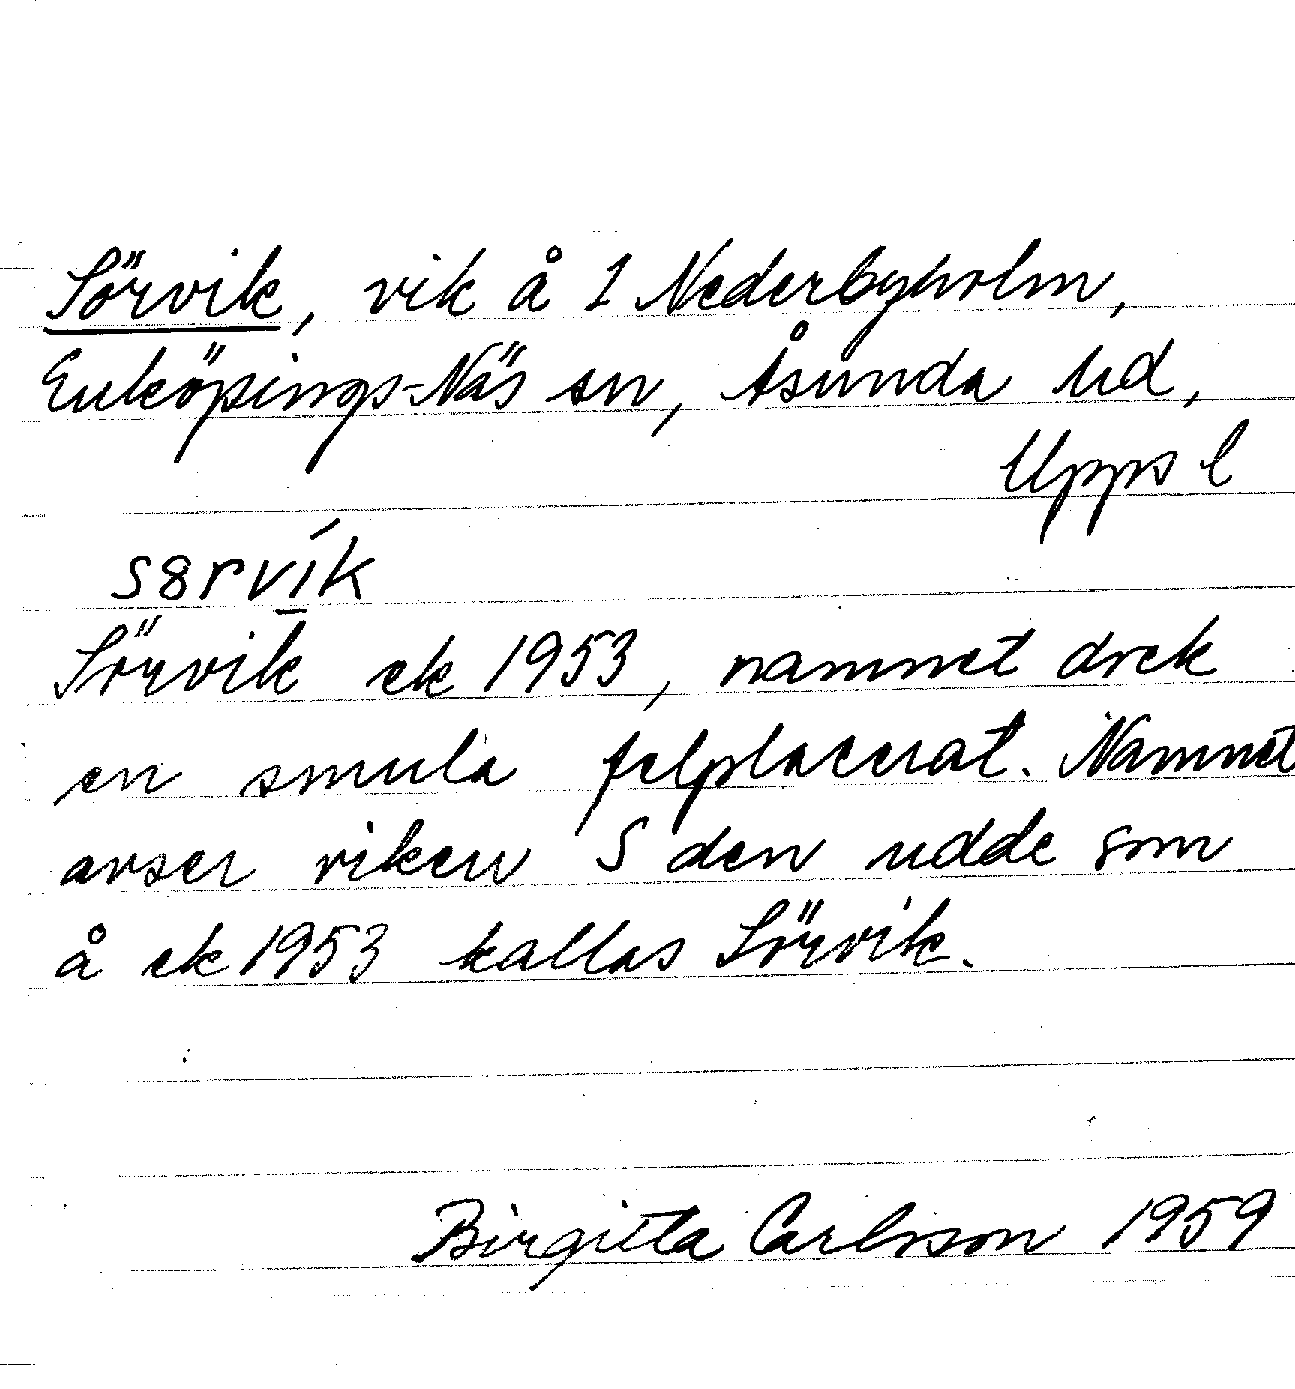 Sörvik, vik å 1 Nederbyholm,
Enköpings-Näs sn, Åsunda hd,
Upps l
s8rvík
Sörvik ek 1953, namnet dock
en smula felplacerat. Namnet
avser viken S den udde som
å ek 1953 kallas Sörvik.
Birgitta Carlsson 1959